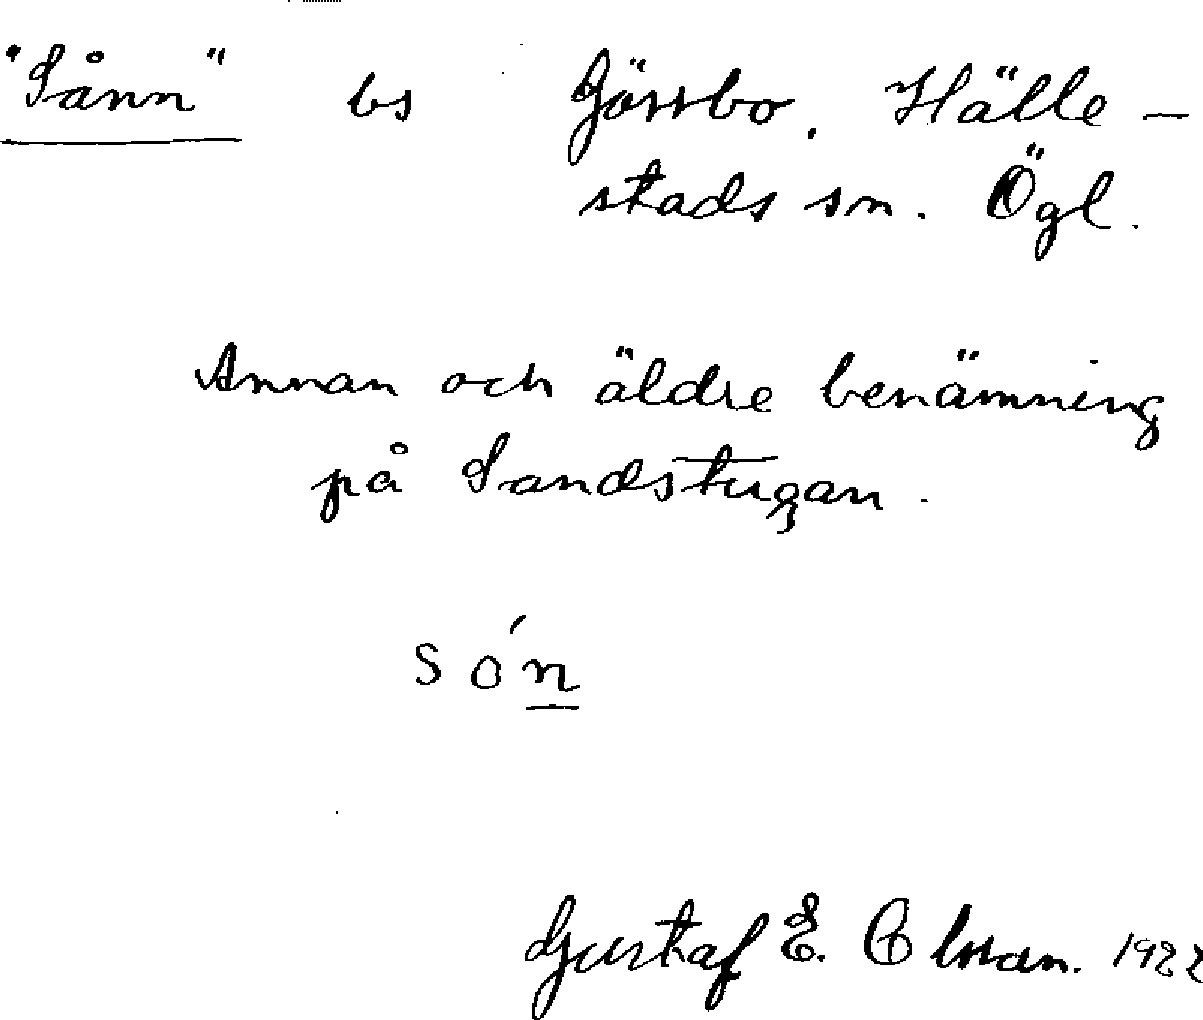 "Sånn" bs Görsbo. Hälle-
stads sn. Ögl.
Annan och äldre benämning
på Sandstugan.
són
Gustaf E. Olsson. 1922